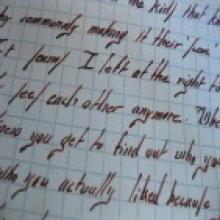 the kid) that
by community making it their
I left at the right
see each other anymore.
you get to find out who you
who you actually liked because